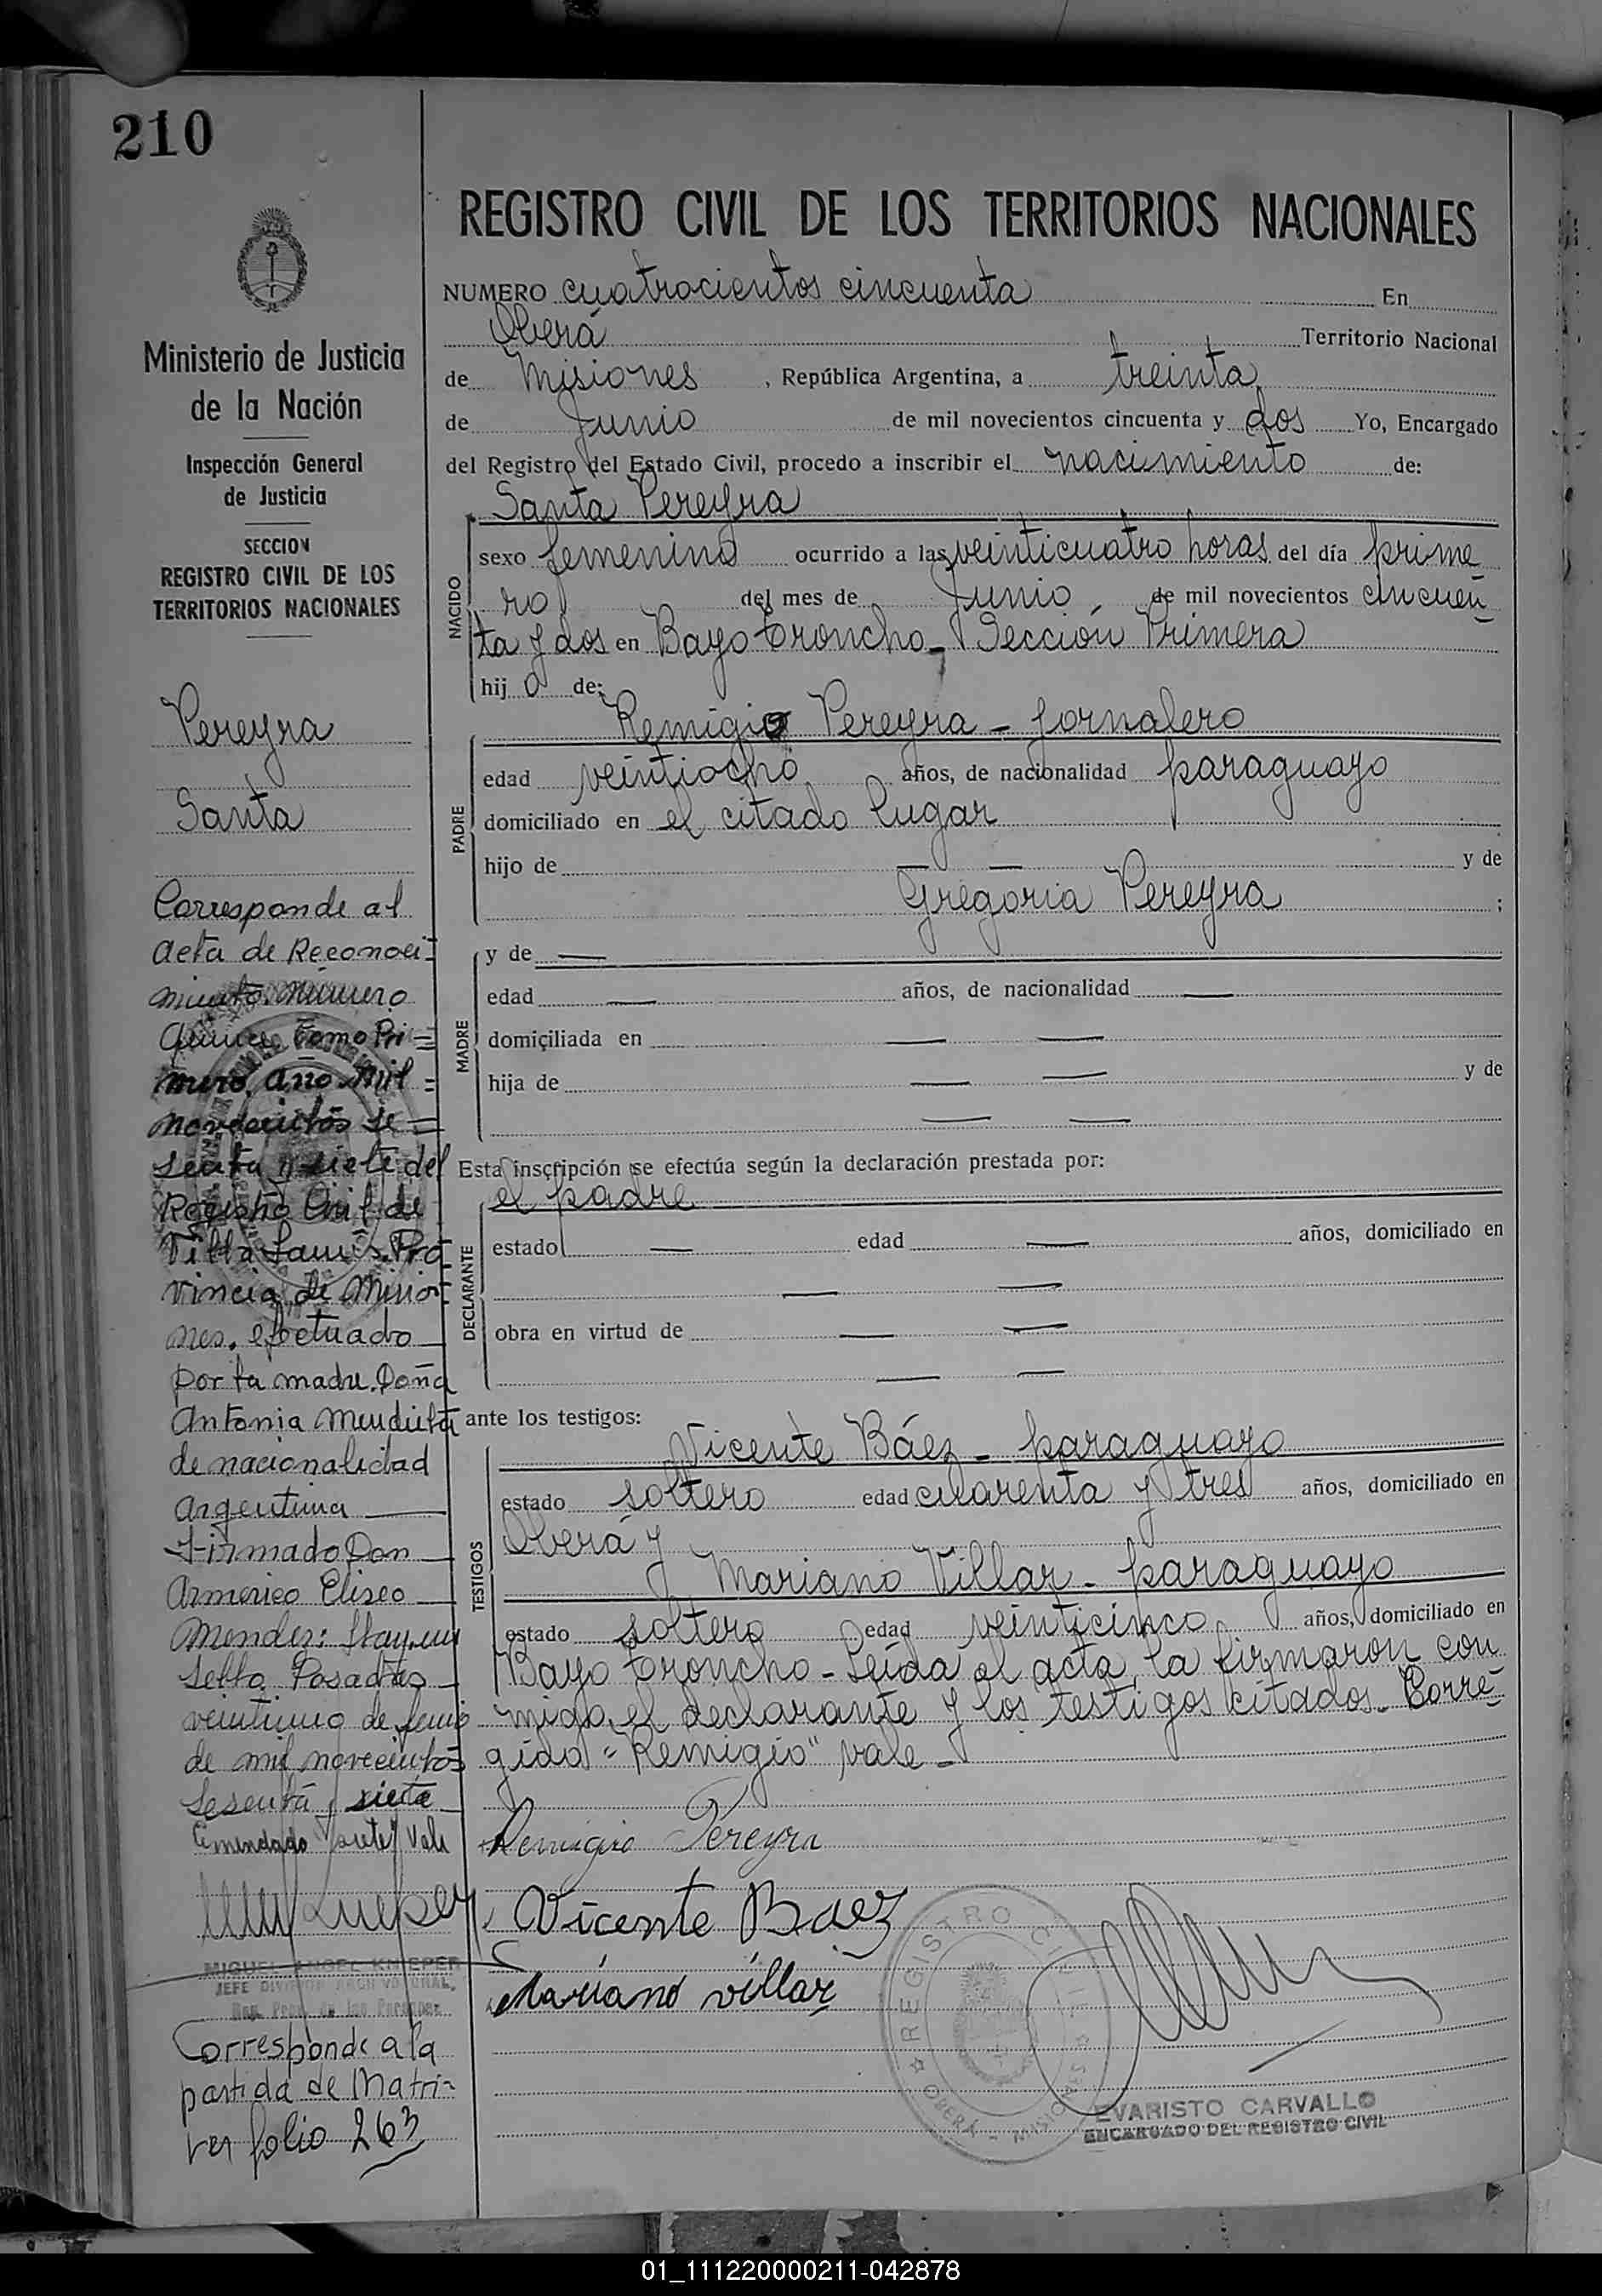 210
Ministerio de Justicia
de la Nación
Inspección General
de Justicia
SECCION
REGISTRO CIVIL DE LOS
TERRITORIOS NACIONALES
Pereyra
Santa
Corresponde al
acta de Reconoci=
miento. Número
Quince, Tomo Pri=
mero, Año Mil=
novecientos se=
senta y siete del
Registro Civil de
Villa Lanús. Pro
vincia de Misio=
nes. efectuado
por la madre. Doña
Antonia Mendieta
de nacionalidad
Argentina
Firmado Don
Armerico Eliseo
Mendez: Hay un
sello Posadas
veintiuno de junio
de mil novecientos
sesenta y siete
Enmendado siete Vale
MIGUEL ANGEL KNIEPER
JEFE DIVISION ARCHIVO GRAL.
Reg. Prov. de las Personas
Corresponde a la
partida de Matri=
ver folio 263
REGISTRO CIVIL DE LOS TERRITORIOS NACIONALES
NUMERO cuatrocientos cincuenta En
Oberá Territorio Nacional
de Misiones , República Argentina, a treinta
de Junio de mil novecientos cincuenta y dos Yo, Encargado
del Registro del Estado Civil, procedo a inscribir el nacimiento de:
Santa Pereyra
NACIDO
sexo femenino ocurrido a las veinticuatro horas del día prime
ro del mes de Junio de mil novecientos cincuen
ta y dos en Bayo Troncho - Sección Primera
hij a de:
Remigio Pereyra - Jornalero
PADRE
edad veintiocho años, de nacionalidad paraguayo
domiciliado en el citado lugar
hijo de — — y de
Gregoria Pereyra ;
MADRE
y de —
edad — años, de nacionalidad —
domiciliada en — —
hija de — — y de
— —
Esta inscripción se efectúa según la declaración prestada por:
el padre
DECLARANTE
estado — edad — años, domiciliado en
— —
obra en virtud de — —
— —
ante los testigos:
Vicente Báez - paraguayo
TESTIGOS
estado soltero edad cuarenta y tres años, domiciliado en
Oberá y
Mariano Villar - paraguayo
estado soltero edad veinticinco años, domiciliado en
Bayo Troncho - Leída el acta, la firmaron con
migo, el declarante y los testigos citados - Corre-
gido "Remigio" vale -
Remigio Pereyra
Vicente Baez
Mariano villar
REGISTRO CIVIL
OBERÁ - MISIONES
EVARISTO CARVALLO
ENCARGADO DEL REGISTRO CIVIL
01_111220000211-042878